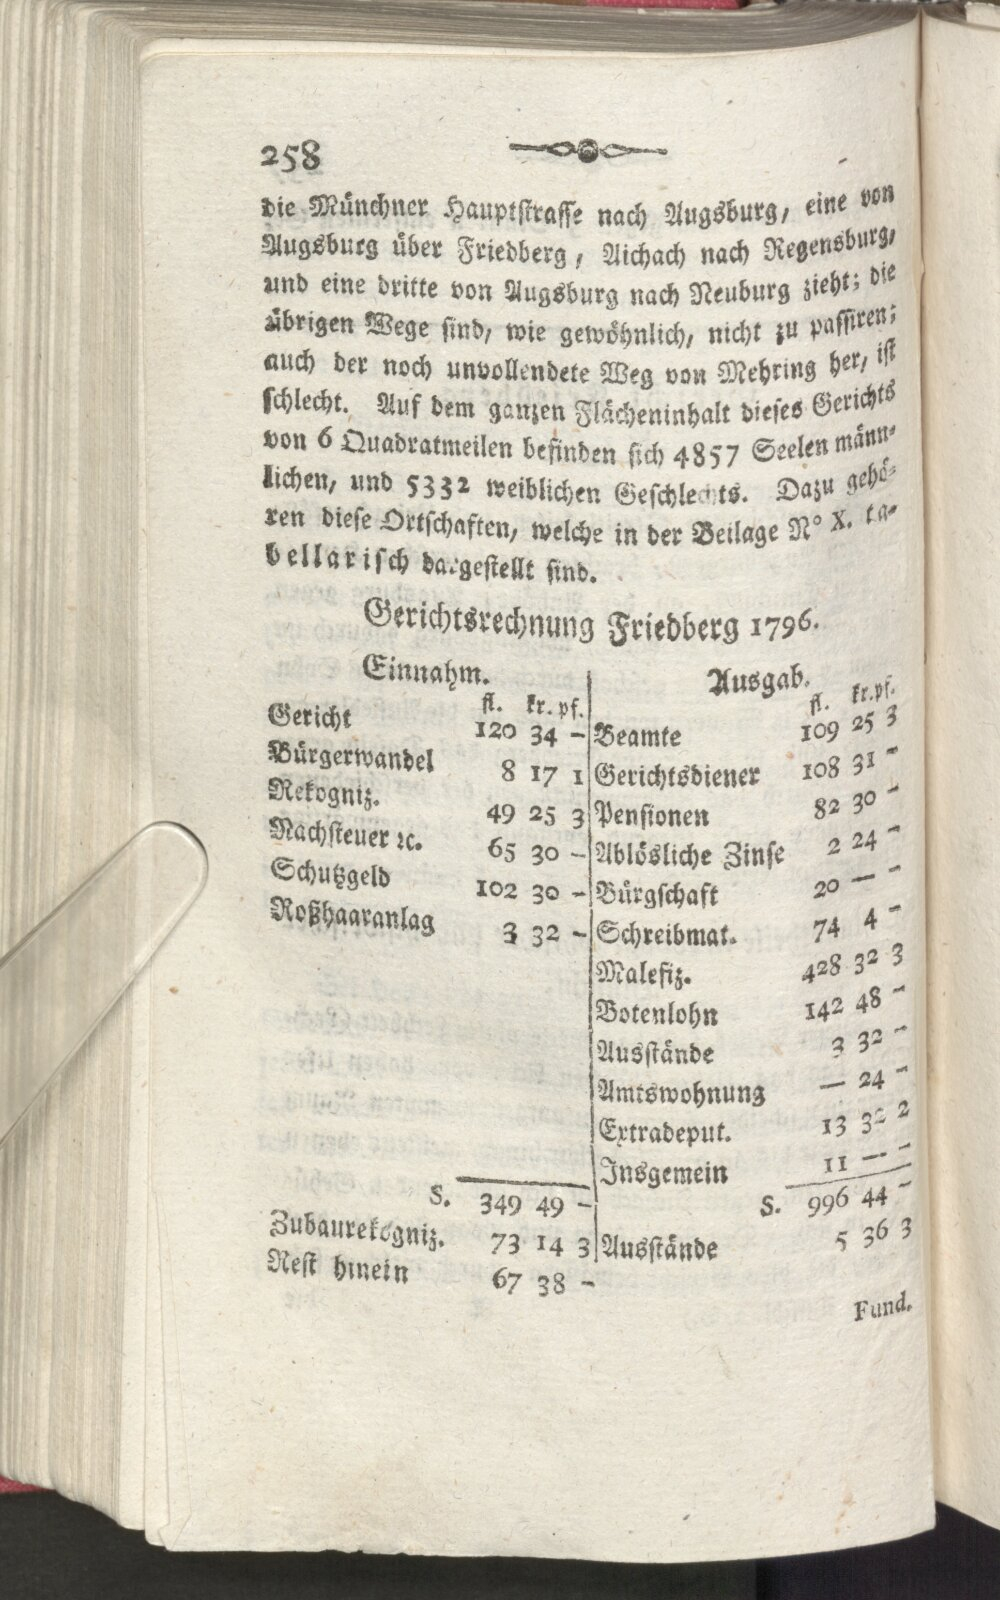 258
die Münchner Hauptstrasse nach Augsburg, eine von
Augsburg über Friedberg, Aichach nach Regensburg,
und eine dritte von Augsburg nach Neuburg zieht; die
übrigen Wege sind, wie gewöhnlich, nicht zu passiren;
auch der noch unvollendete Weg von Mehring her, ist
schlecht. Auf dem ganzen Flächeninhalt dieses Gerichts
von 6 Quadratmeilen befinden sich 4857 Seelen männ-
lichen, und 5332 weiblichen Geschlechts. Dazu gehö-
ren diese Ortschaften, welche in der Beilage N° X. ta-
bellarisch dargestellt sind.
Gerichtsrechnung Friedberg 1796.
Einnahm.
fl. kr. pf.
Gericht 120 34 –
Bürgerwandel 8 17 1
Rekogniz. 49 25 3
Nachsteuer ꝛc. 65 30 –
Schutzgeld 102 30 –
Roßhaaranlag 3 32 –
S. 349 49 –
Zubaurekogniz. 73 14 3
Rest hinein 67 38 –
Ausgab.
fl. kr. pf.
Beamte 109 25 3
Gerichtsdiener 108 31 –
Pensionen 82 30 –
Ablösliche Zinse 2 24 –
Bürgschaft 20 — –
Schreibmat. 74 4 –
Malefiz. 428 32 3
Botenlohn 142 48 –
Ausstände 3 32 –
Amtswohnung — 24 –
Extradeput. 13 32 2
Insgemein 11 — –
S. 996 44 –
Ausstände 5 36 3
Fund.